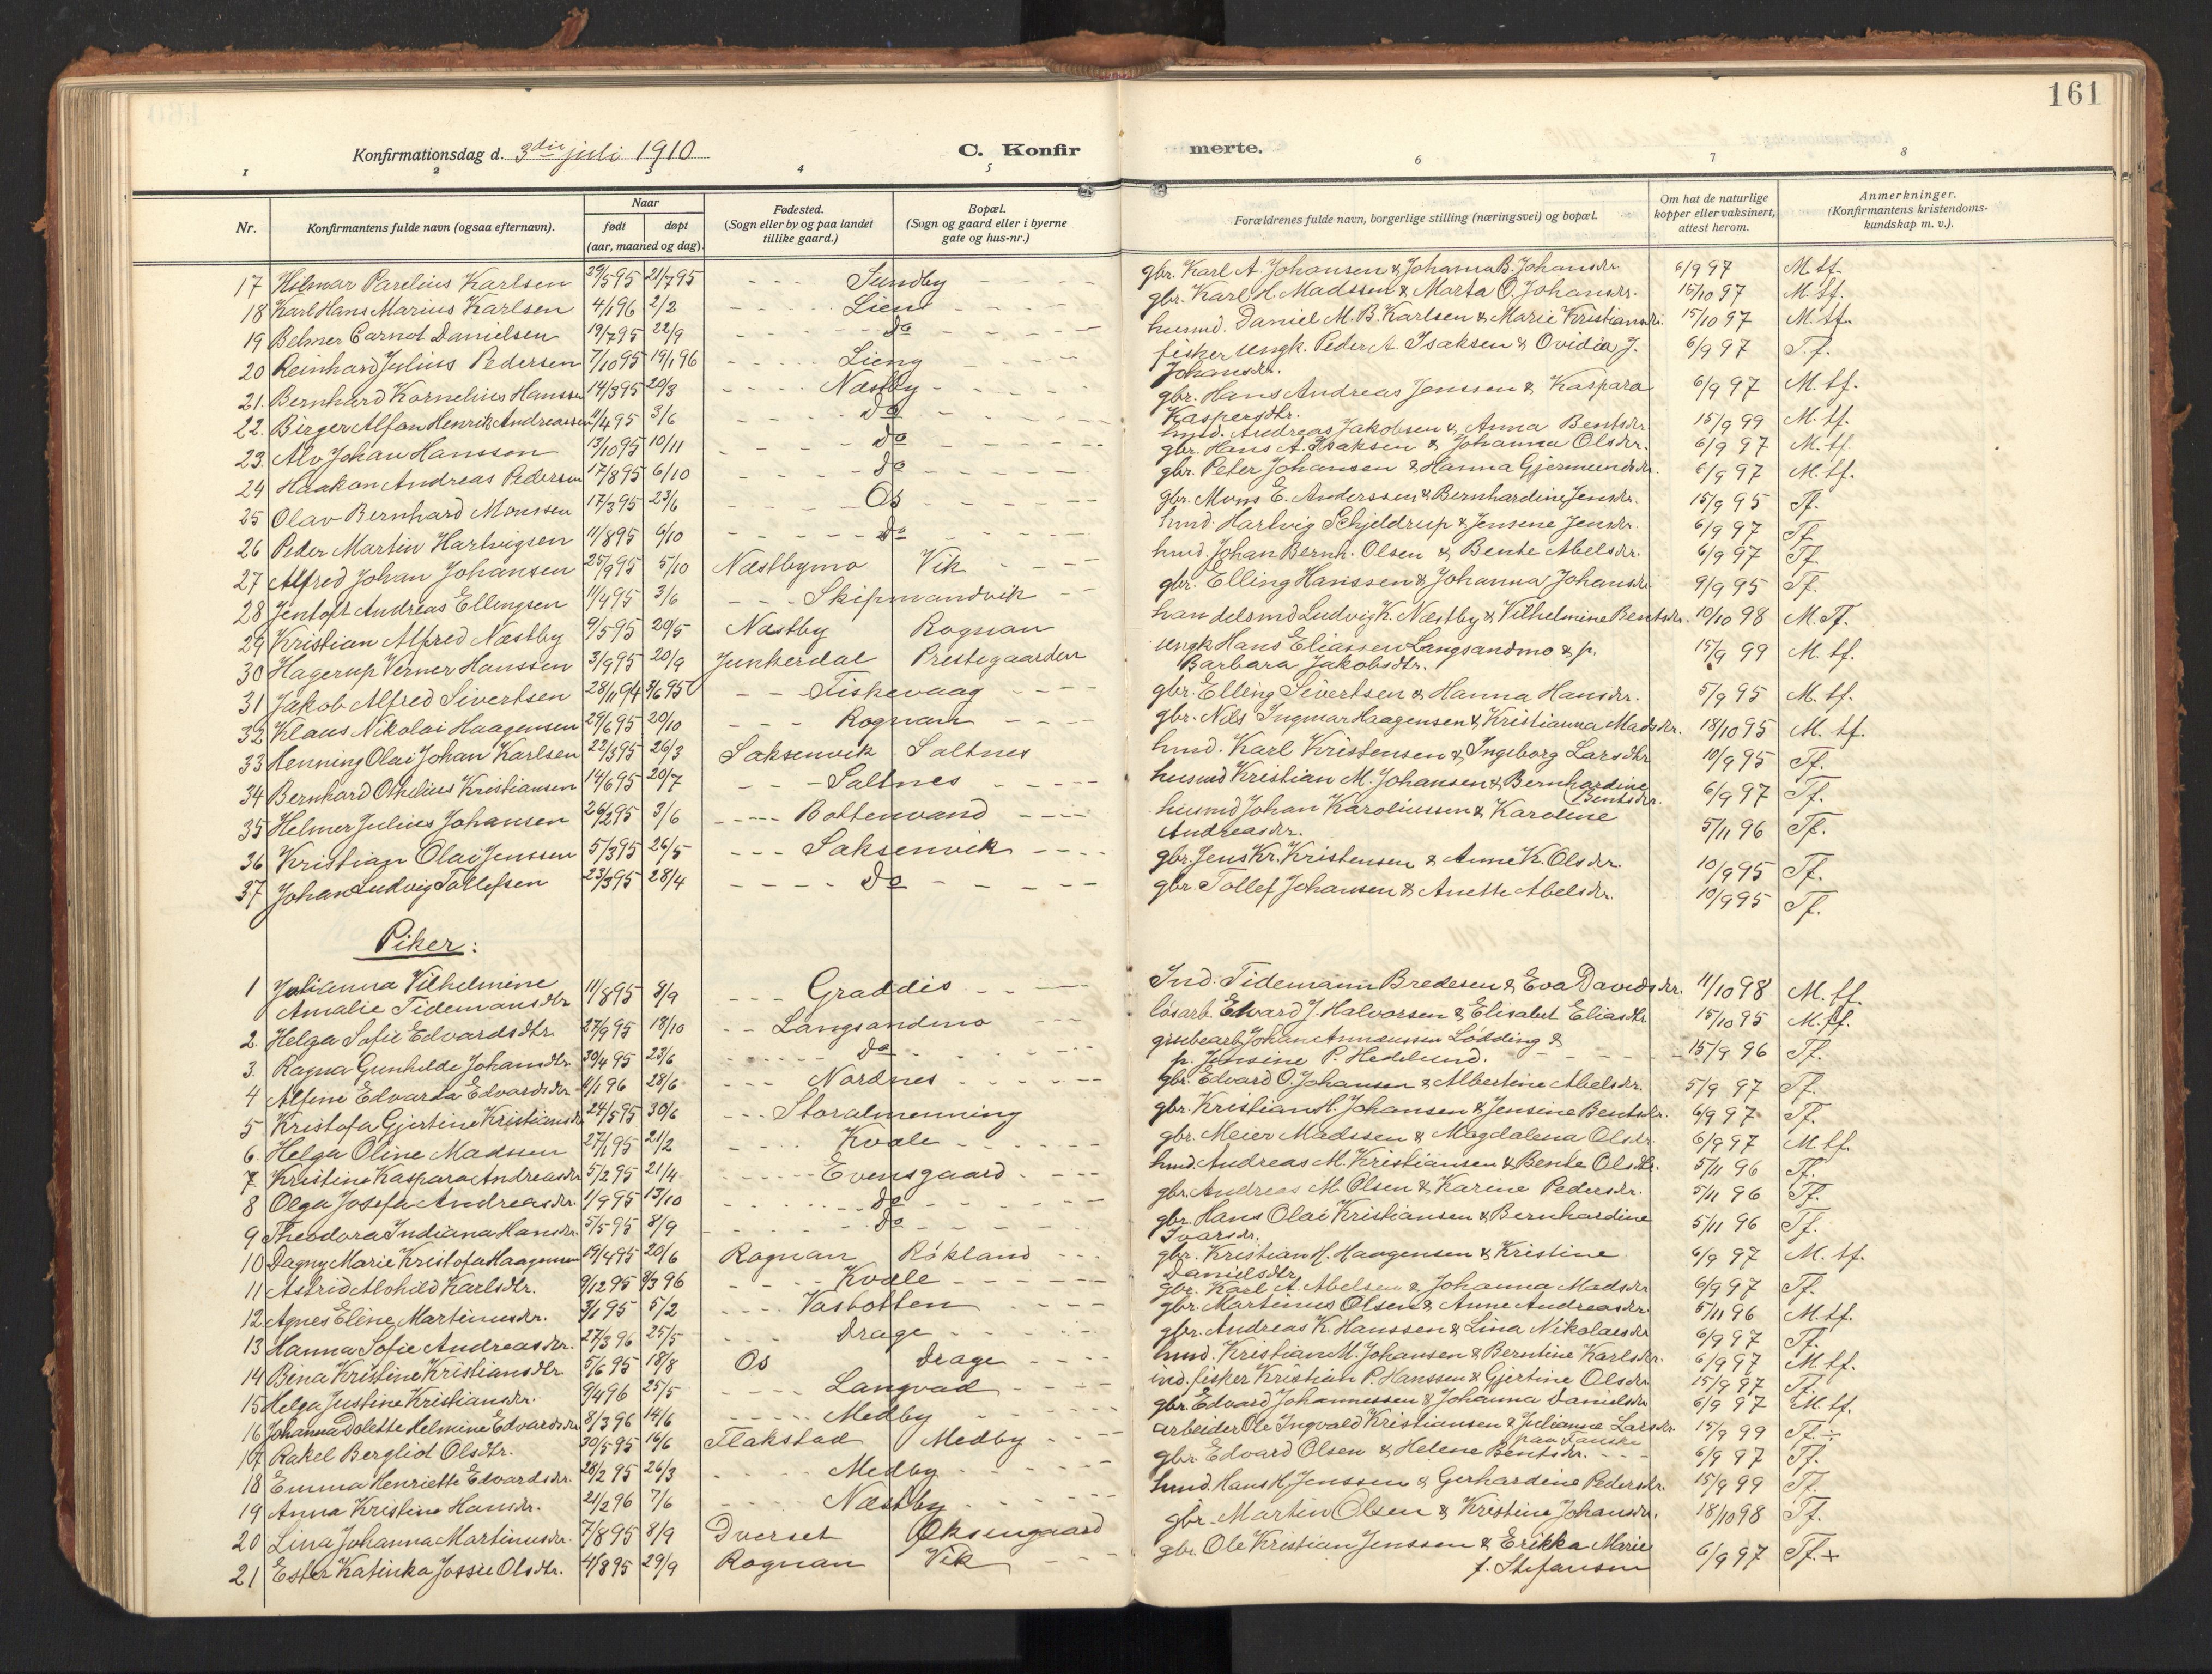 161
Konfirmationsdag d. 3die juli 1910
C. Konfir
merte.
1 2 3 4 5 6 7 8
Nr.
Konfirmantens fulde navn (ogsaa efternavn).
Naar
født
døpt
(aar, maaned og dag).
Fødested.
(Sogn eller by og paa landet
tillike gaard.)
Bopæl.
(Sogn og gaard eller i byerne
gate og hus-nr.)
Forældrenes fulde navn, borgerlige stilling (næringsvei) og bopæl.
Om hat de naturlige
kopper eller vaksinert,
attest herom.
Anmerkninger.
(Konfirmantens kristendoms-
kundskap m. v.).
17 Hilmar Parelius Karlsen 29/5 95 21/7 95 Sundby gbr. Karl A. Johansen & Johanna B. Johansdr. 6/9 97 M. tf.
18 Karl Hans Marius Karlsen 4/1 96 2/2 Lien gbr. Karl H. Madssen & Marta O. Johansdr. 15/10 97 M. tf.
19 Belmer Carnot Danielsen 19/7 95 22/9 Do husmd. Daniel M. B. Karlsen & Marie Kristiansdr. 15/10 97 M. tf.
20 Reinhard Julius Pedersen 7/10 95 19/1 96 Lieng fisker ungk. Peder A. Isaksen & Ovidia J. 6/9 97 T. f.
Johansdr.
21. Bernhard Kornelius Hanssen 14/3 95 20/3 Næstby gbr. Hans Andreas Jenssen & Kaspara 6/9 97 M. tf.
Kaspersdtr.
22. Birger Alfon Henrik Andreassen 11/4 95 3/6 Do hmd. Andreas Jakobsen & Anna Bentsdr. 15/9 99 M. tf.
23. Alv Johan Hanssen 13/10 95 10/11 Do gbr. Hans A. Isaksen & Johanna Olsdr. 6/9 97 M. tf.
24 Haakon Andreas Pedersen 17/8 95 6/10 Do gbr. Peter Johansen & Hanna Gjermundsdr. 6/9 97 M. tf.
25 Olav Bernhard Monssen 17/3 95 23/6 Os gbr. Mons E. Anderssen & Bernhardine Jensdr. 15/9 95 Tf.
26 Peder Martin Hartvigsen 11/8 95 6/10 Do hmd. Hartvig Schjeldrup & Jensine Jensdr. 6/9 97 Tf.
27 Alfred Johan Johansen 25/9 95 5/10 Næstbymo Vik hmd. Johan Bernh. Olsen & Bente Abelsdr. 6/9 97 Tf.
28 Jentoft Andreas Ellingsen 11/4 95 3/6 Skipmandvik gbr. Elling Hanssen & Johanna Johansdr. 9/9 95 Tf.
29 Kristian Alfred Næstby 9/5 95 20/5 Næstby Rognan handelsmd Ludvig K. Næstby & Vilhelmine Bentsdr. 10/10 98 M. Tf.
30 Hagerup Verner Hanssen 3/9 95 20/9 Junkerdal Prestegaarden ungk Hans Eliassen Langsandmo & p. 15/9 99 M. tf.
Barbara Jakobsdtr.
31 Jakob Alfred Sivertsen 28/11 94 3/6 95 Fiskevaag gbr. Elling Sivertsen & Hanna Hansdr. 5/9 95 M. tf.
32 Klaus Nikolai Haagensen 29/6 95 20/10 Rognan gbr. Nils Ingmar Haagensen & Kristianna Madsdr. 18/10 95 M. tf.
33 Henning Olai Johan Karlsen 22/3 95 26/3 Saksenvik Saltnes hmd. Karl Kristensen & Ingeborg Larsdtr 10/9 95 Tf.
34 Bernhard Othelius Kristiansen 14/6 95 20/7 Saltnes husmd Kristian M. Johansen & Bernhardine 6/9 97 Tf.
Bentsdr.
35 Helmer Julius Johansen 26/2 95 3/6 Bottenvand husmd Johan Karoliussen & Karoline 5/11 96 Tf.
Andreasdr.
36 Kristian Olai Jenssen 5/3 95 26/5 Saksenvik gbr. Jens Kr. Kristensen & Anne K. Olsdr. 10/9 95 Tf.
37 Johan Ludvig Tollefsen 23/3 95 28/4 Do gbr. Tollef Johansen & Anette Abelsdr. 10/9 95 Tf.
Piker:
1 Julianna Vilhelmine
Amalie Tidemansdtr 11/8 95 8/9 Graddis Ind. Tidemann Bredesen & Eva Davidsdr. 11/10 98 M. tf.
2. Helga Sofie Edvardsdtr. 27/9 95 18/10 Langsandmo løsarb. Edvard J. Halvorsen & Elisabet Eliasdtr 15/10 95 M. tf.
3. Ragna Gunhilde Johansdtr 30/4 95 23/6 Do Johan Annæussen Lødding & 15/9 96 Tf.
p. Jensine P. Hedelund.
4 Alfine Edvarda Edvardsdr 4/1 96 28/6 Nordnes gbr. Edvard O. Johansen & Albertine Abelsdr. 5/9 97 Tf.
5 Kristofa Gjertine Kristiansdr 24/5 95 30/6 Storalmenning gbr. Kristian H. Johansen & Jensine Bentsdr. 6/9 97 Tf.
6. Helga Oline Madssen 27/1 95 21/2 Kvæle gbr. Meier Madssen & Magdalena Olsdr 6/9 97 M. tf.
7 Kristine Kaspara Andreasdr 5/2 95 21/4 Evensgaard hmd. Andreas M. Kristiansen & Bente Olsdtr. 5/11 96 Tf.
8 Olga Josefa Andreasdr. 1/9 95 13/10 Do gbr. Andreas M. Olsen & Karine Pedersdr. 5/11 96 Tf.
9 Theodora Indiana Hansdr. 5/5 95 8/9 Do gbr. Hans Olai Kristiansen & Bernhardine 5/11 96 Tf.
Ivarsdr.
10 Dagny Marie Kristofa Haagensen 19/4 95 20/6 Rognan Røkland gbr. Kristian H. Haagensen & Kristine 6/9 97 M. tf.
Danielsdtr
11 Astrid Alvhild Karlsdtr. 9/12 95 8/3 96 Kvæle gbr. Karl A. Abelsen & Johanna Madsdr 6/9 97 Tf.
12 Agnes Eline Martinusdr. 3/1 95 5/2 Vasbotten gbr. Martinus Olsen & Anne Andreasdr 5/11 96 M. tf.
13 Hanna Sofie Andreasdr. 27/3 96 25/5 Drage gbr. Andreas K. Hanssen & Lina Nikolaisdr 6/9 97 Tf.
14 Bina Kristine Kristiansdtr 5/6 95 18/8 Os Drage hmd. Kristian M. Johansen & Berntine Karlsdr. 6/9 97 M. tf.
15 Helga Justine Kristiansdr. 9/4 96 25/5 Langvad ind. fisker Kristian P. Hanssen & Gjertine Olsdr 15/9 97 Tf.
16 Johanna Dolette Helmine Edvardsdr 8/3 96 14/6 Medby gbr. Edvard Johannessen & Johanna Danielsdr 6/9 97 M. tf.
17 Rakel Bergliot Olsdtr. 20/5 95 16/6 Flakstad Medby arbeider Ole Ingvald Kristiansen & Julianne Larsdr. 15/9 99 Tf. ÷
paa Fauske
18 Emma Henriette Edvardsdr. 28/2 95 26/3 Medby gbr. Edvard Olsen & Helene Bentsdr. 6/9 97 Tf.
19 Anna Kristine Hansdr. 21/2 96 7/6 Næstby hmd. Hans H. Jenssen & Gerhardine Pedersdr. 15/9 99 Tf.
20 Lina Johanna Martinusdr. 7/8 95 8/9 Dverset Øksengaard gbr. Martin Olsen & Kristine Johansdr. 18/10 98 Tf.
21 Ester Katinka Jossie Olsdtr. 4/8 95 29/9 Rognan Vik gbr. Ole Kristian Jenssen & Erikka Marie 6/9 97 Tf. +
f. Stefansen